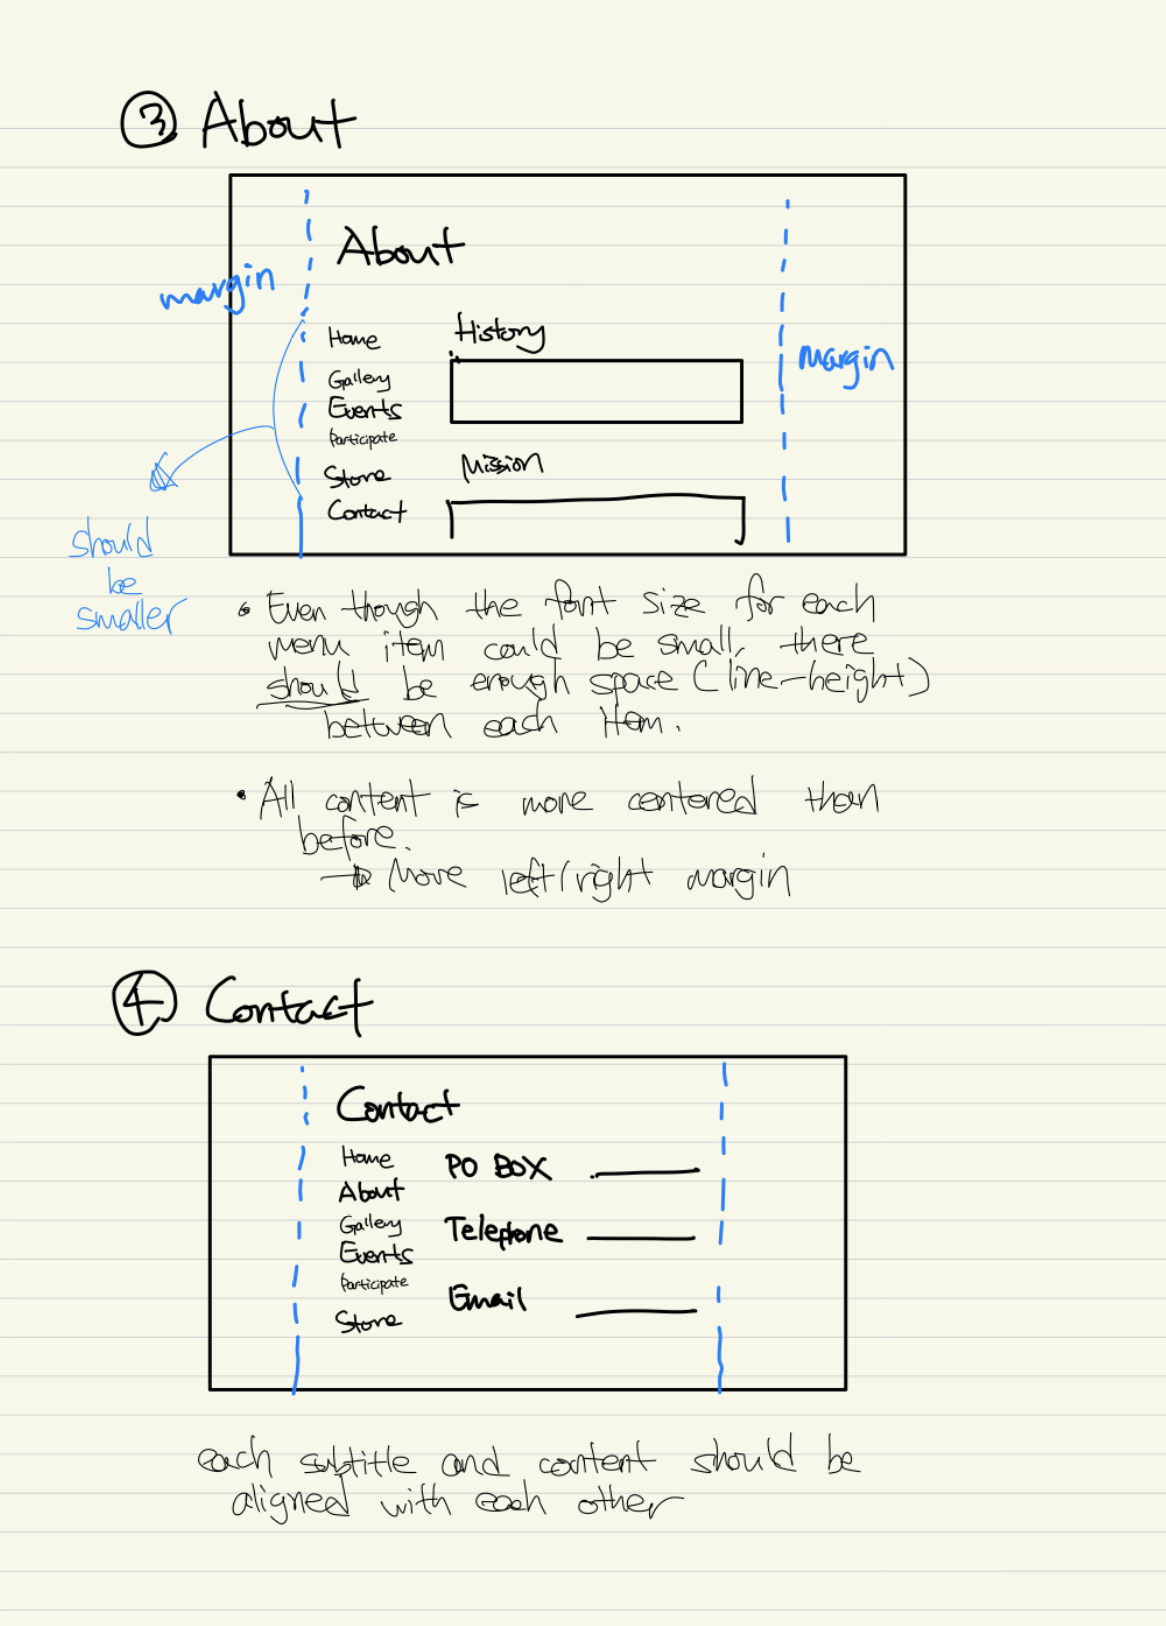 ③ About
About
margin
Home
History
margin
Gallery
Events
Participate
Store
Mission
Contact
should
be
smaller
• Even though the font size for each
menu item could be small, there
should be enough space (line-height)
between each item.
• All content is more centered than
before.
→ Move left/right margin
④ Contact
Contact
Home
PO BOX
About
Gallery
Telephone
Events
Participate
Email
Store
each subtitle and content should be
aligned with each other